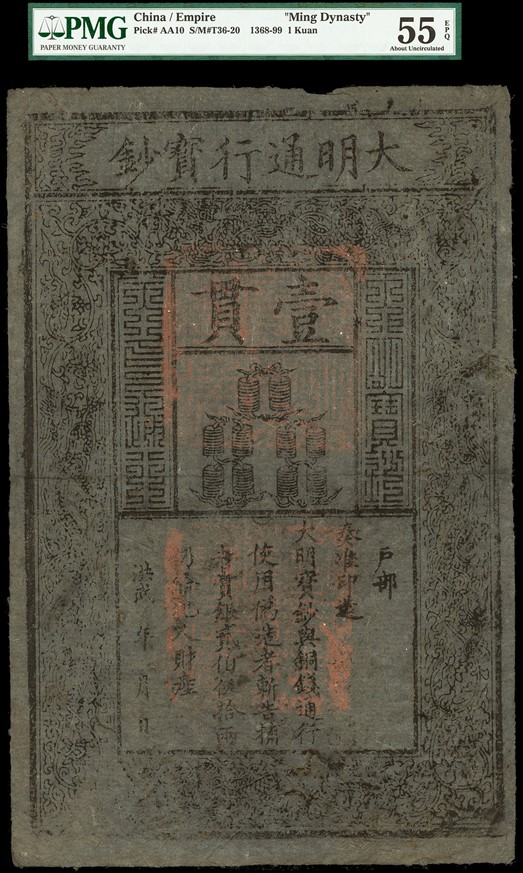 PMG
PAPER MONEY GUARANTY
China / Empire "Ming Dynasty"
Pick# AA10 S/M#T36-20 1368-99 1 Kuan
55 EPQ
About Uncirculated
大明通行寶鈔
壹貫
大明寶鈔
天下通行
戶部
奏准印造
大明寶鈔與銅錢通行
使用偽造者斬告捕
者賞銀貳伯伍拾兩
仍給犯人財產
洪武 年 月 日